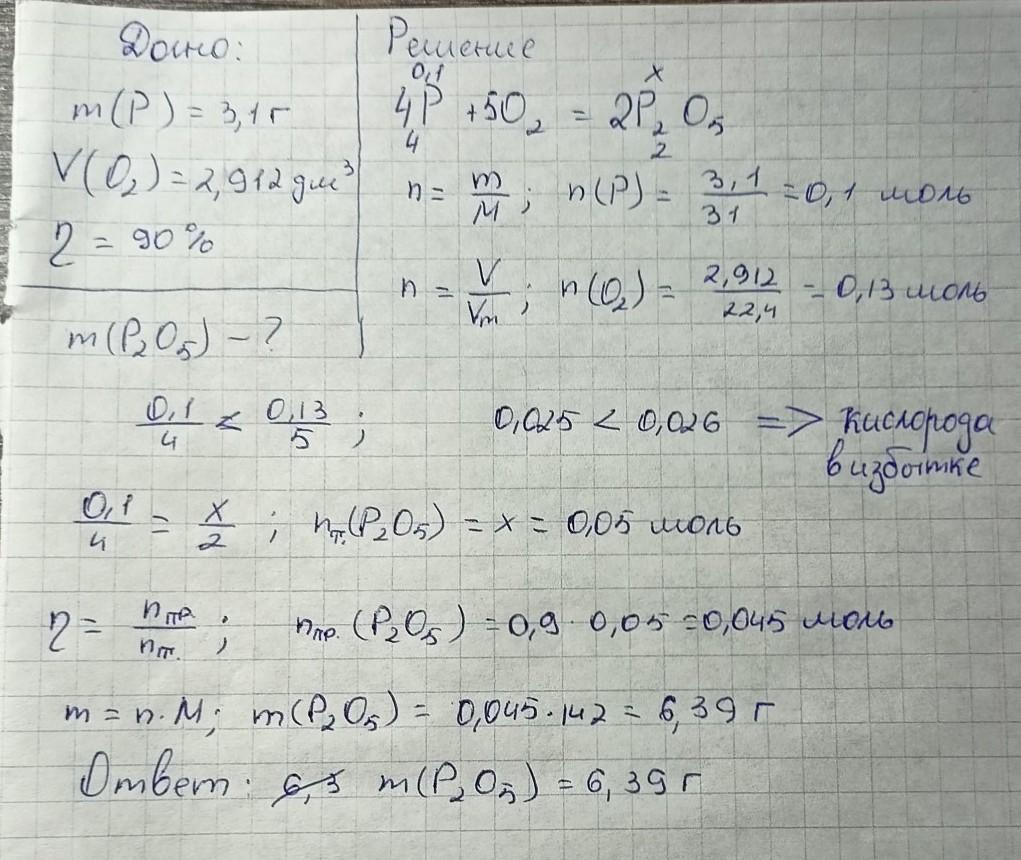 Дано:
m(P) = 3,1 г
V(O₂) = 2,912 дм³
η = 90 %
m(P₂O₅) – ?
Решение
0,1 x
4P + 5O₂ = 2P₂O₅
4 2
n = m/M ; n(P) = 3,1/31 = 0,1 моль
n = V/Vm ; n(O₂) = 2,912/22,4 = 0,13 моль
0,1/4 < 0,13/5 ; 0,025 < 0,026 => кислорода
в избытке
0,1/4 = x/2 ; nт.(P₂O₅) = x = 0,05 моль
η = nпр./nт. ; nпр.(P₂O₅) = 0,9 · 0,05 = 0,045 моль
m = n·M; m(P₂O₅) = 0,045·142 = 6,39 г
Ответ: 6,3 m(P₂O₅) = 6,39 г